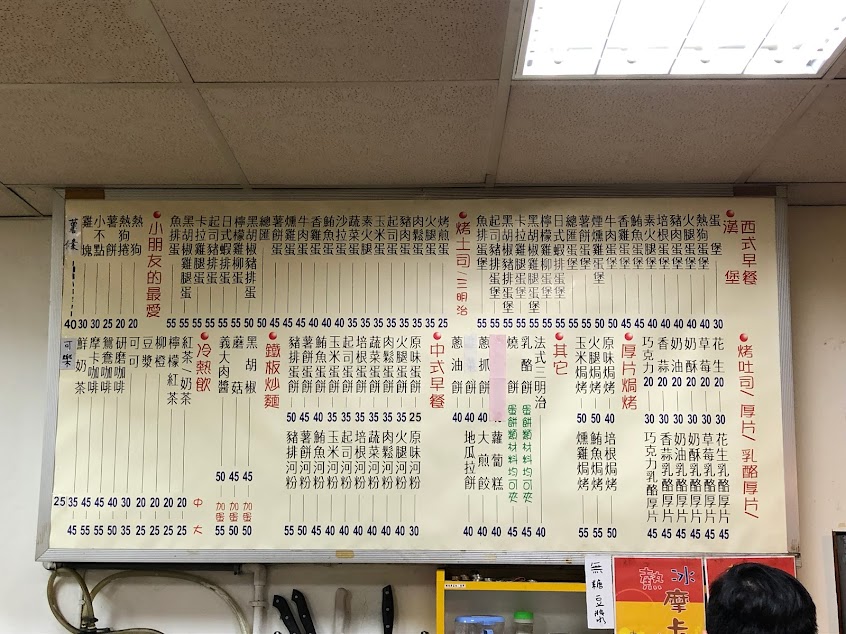 西式早餐
漢堡
蛋堡
熱狗蛋堡
火腿蛋堡
豬肉蛋堡
培根蛋堡
素火腿蛋堡
鮪魚蛋堡
香雞蛋堡
牛肉蛋堡
煙燻雞蛋堡
薯餅蛋堡
總匯蛋堡
日式蝦排蛋堡
檸檬雞柳蛋堡
黑胡椒雞腿蛋堡
卡拉雞腿蛋堡
黑胡椒豬排蛋堡
起司豬排蛋堡
魚排蛋堡
烤土司/三明治
煎蛋
火腿蛋
肉鬆蛋
豬肉蛋
起司蛋
玉米蛋
素火腿蛋
蔬菜蛋
沙拉蛋
鮪魚蛋
香雞蛋
牛肉蛋
燻雞蛋
薯餅蛋
總匯
黑胡椒豬排蛋
檸檬雞柳蛋
日式蝦排蛋
起司豬排蛋
卡拉雞腿蛋
黑胡椒雞腿蛋
魚排蛋
小朋友的最愛
熱狗 20
熱狗捲 20
薯餅 25
小不點 30
雞塊 30
薯條 40
烤吐司/厚片/乳酪厚片/
花生 20 30
草莓 20 30
奶酥 20 30
奶油 20 30
香蒜 20 30
巧克力 20 30
花生乳酪厚片 45
草莓乳酪厚片 45
奶酥乳酪厚片 45
奶油乳酪厚片 45
香蒜乳酪厚片 45
巧克力乳酪厚片 45
厚片焗烤
原味焗烤 40
火腿焗烤 50
玉米焗烤 50
培根焗烤 50
鮪魚焗烤 55
燻雞焗烤 55
其它
法式三明治 40
乳酪餅
燒餅
蛋餅類材料均可夾
蛋餅類材料均可夾
蔥抓餅
蔥油餅 40
蘿蔔糕
大煎餃 40
地瓜拉餅 40
中式早餐
原味蛋餅 25
火腿蛋餅 35
肉鬆蛋餅 35
蔬菜蛋餅 35
培根蛋餅 35
起司蛋餅 35
玉米蛋餅 35
鮪魚蛋餅 40
薯餅蛋餅 45
豬排蛋餅 50
原味河粉 30
火腿河粉 40
肉鬆河粉 40
蔬菜河粉 40
培根河粉 40
起司河粉 40
玉米河粉 40
鮪魚河粉 45
薯餅河粉 50
豬排河粉 55
鐵板炒麵
黑胡椒 45 加蛋 50
蘑菇 45 加蛋 50
義大肉醬 50 加蛋 55
冷熱飲
中
大
紅茶/奶茶 20
檸檬紅茶 20
柳橙 20
豆漿 20
可可
研磨咖啡
鴛鴦咖啡
摩卡咖啡
鮮奶茶
可樂 25
無糖豆漿
冰
熱
摩卡